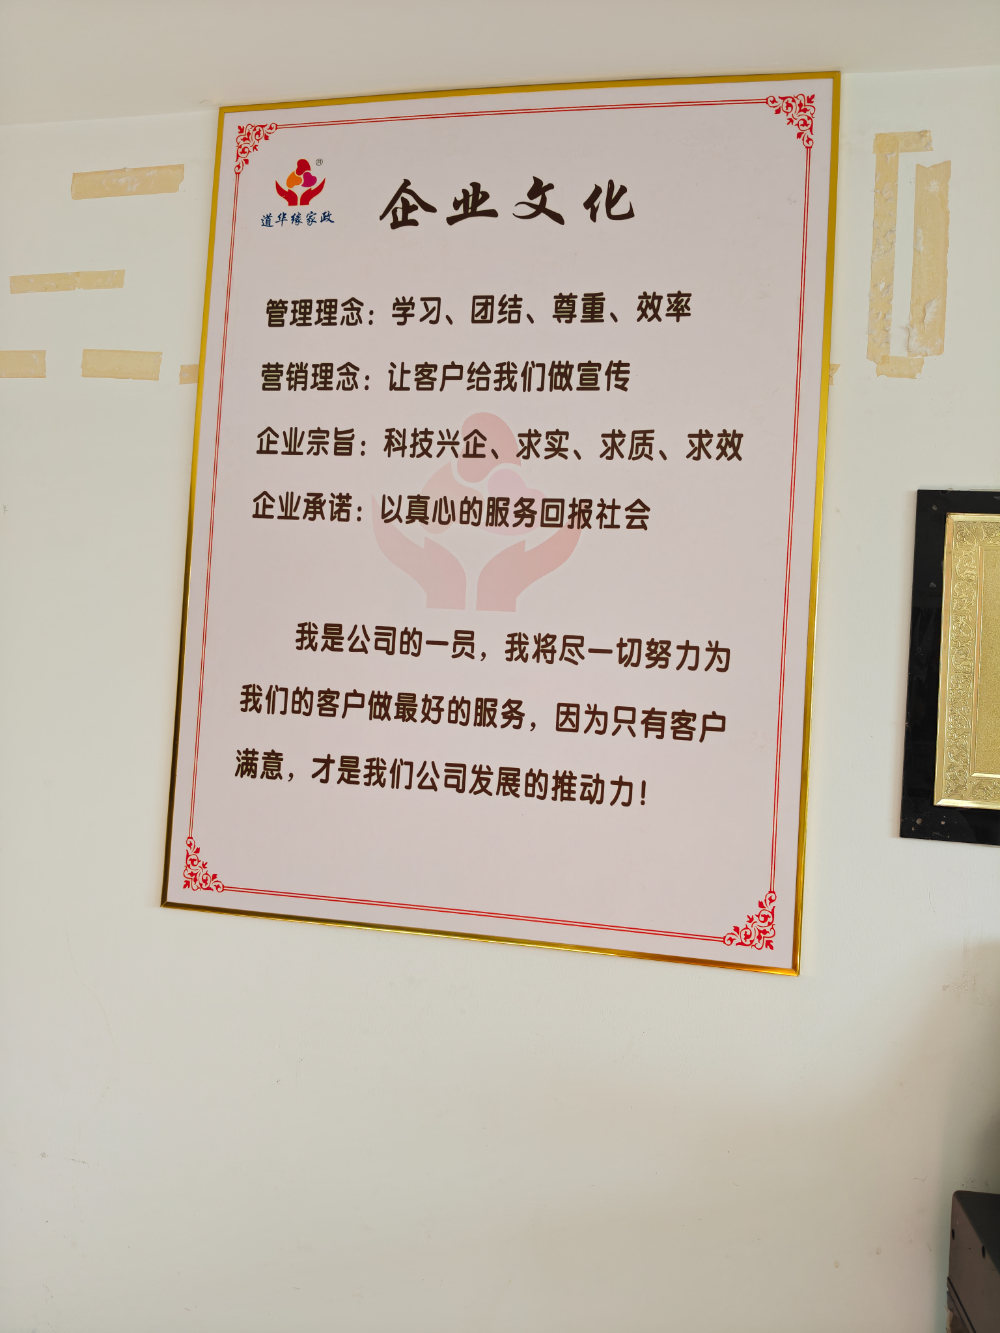 道华缘家政
®
企业文化
管理理念：学习、团结、尊重、效率
营销理念：让客户给我们做宣传
企业宗旨：科技兴企、求实、求质、求效
企业承诺：以真心的服务回报社会
我是公司的一员，我将尽一切努力为
我们的客户做最好的服务，因为只有客户
满意，才是我们公司发展的推动力！